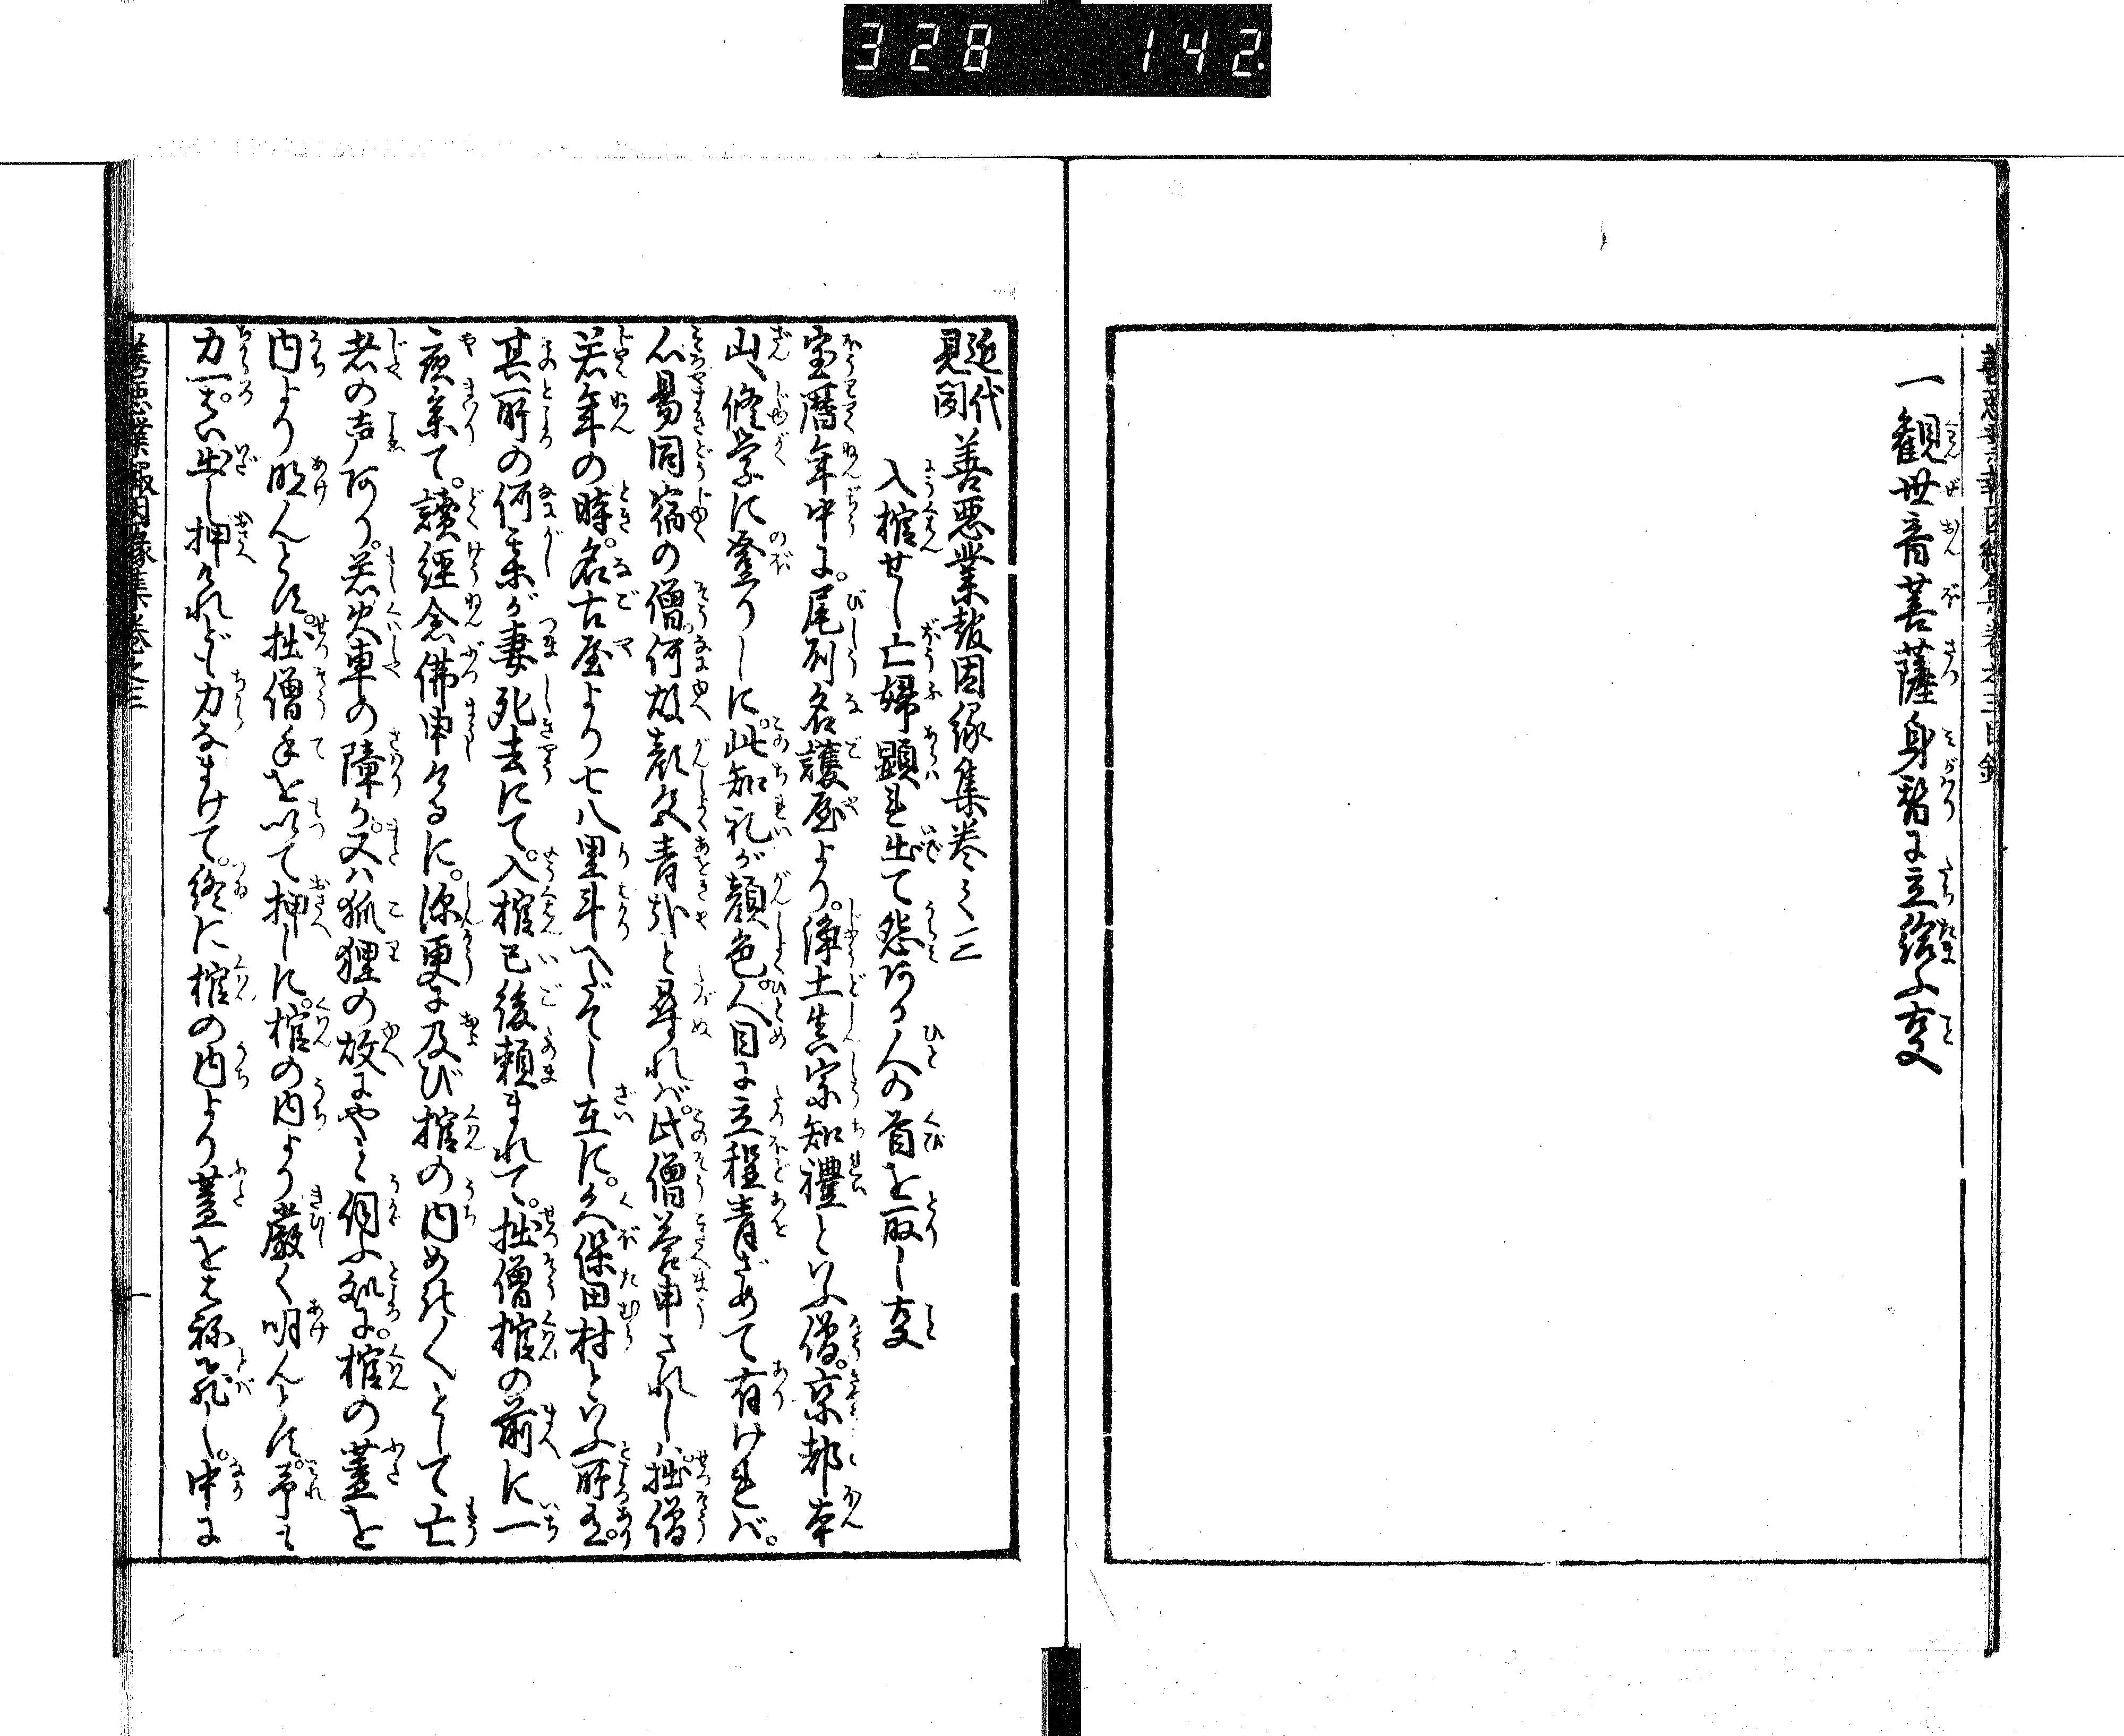 328 142
一観世音菩薩身替に立給ふ事
近代
見聞
善悪業報因縁集巻之三
入棺せし亡婦顕れ出て怨ある人の首を取し事
宝暦年中に。尾刕名護屋より。浄土真宗知禮といふ僧。京都本
山へ修学に登りしに。此知礼が顔色。人目に立程青ざめて有ければ。
心易同宿の僧。何故顔色青哉と尋ぬれば。此僧答申されしハ。拙僧
若年の時。名古屋より七八里斗へだてし在に。久保田村といふ所有。
其所の何某が妻死去にて。入棺已後頼まれて。拙僧棺の前に一
夜参て。讀經念佛申けるに。深更に及び棺の内めり〳〵として亡
者の声あり。若火車の障か。又ハ狐狸の故にやと伺ふ処に。棺の蓋を
内より明んとす。拙僧手を以て押しに。棺の内より厳く明んとす。予も
力一ぱい出し押けれども力なまけて。終に棺の内より蓋をはね飛し。中に
善悪業報因縁集巻之三 一